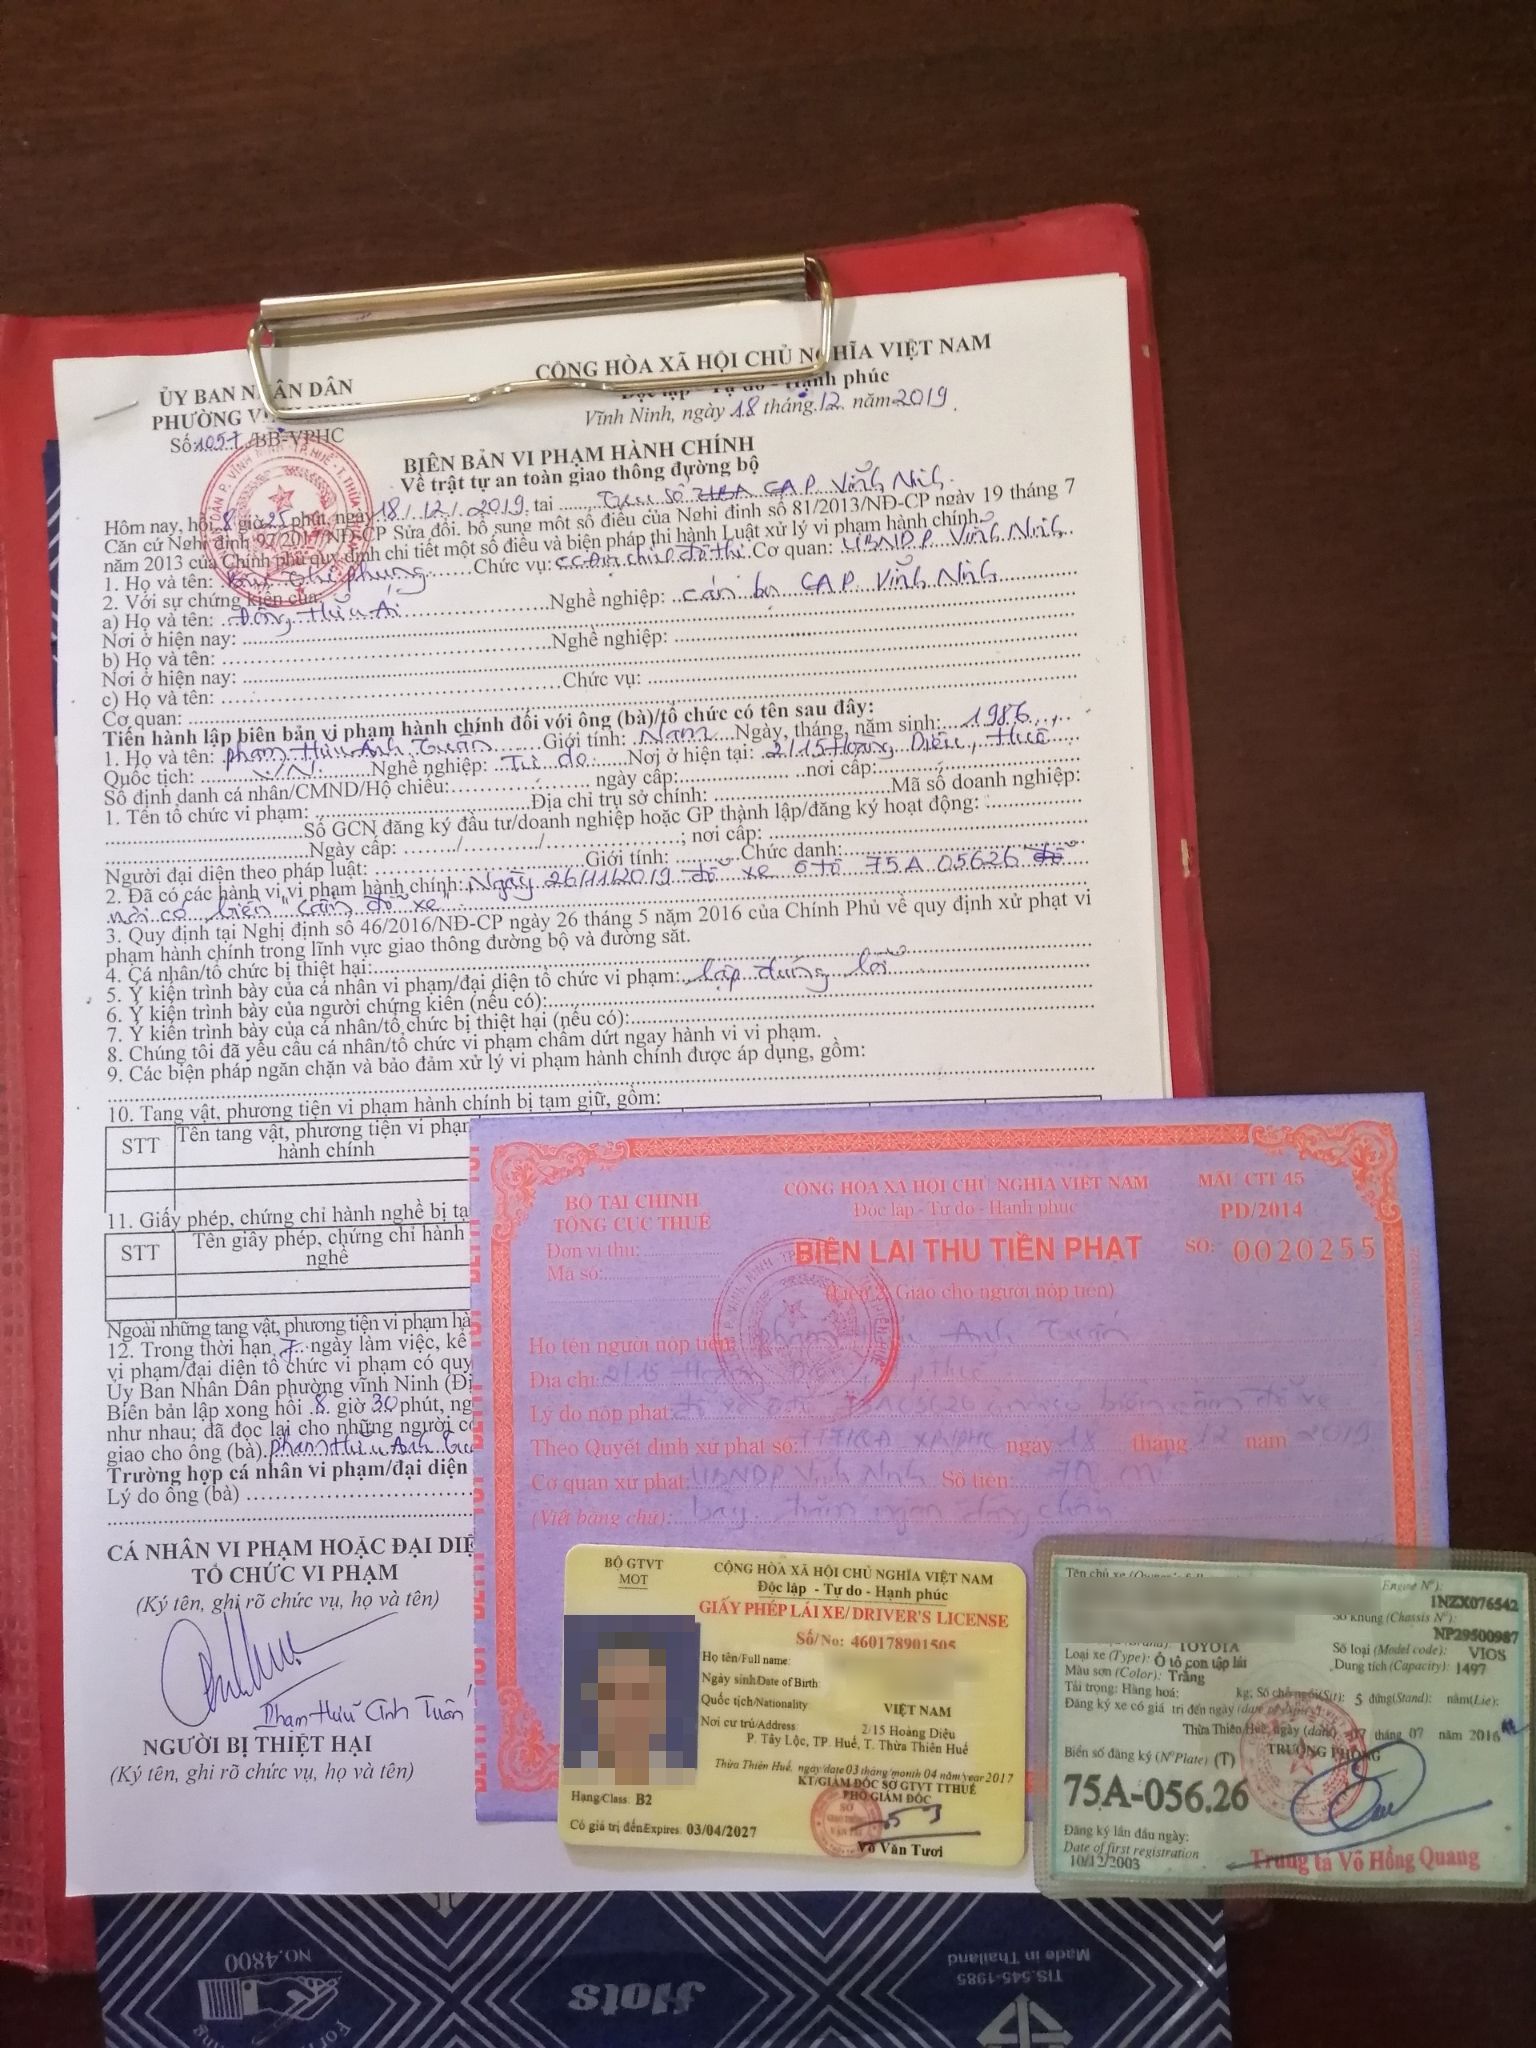 CỘNG HÒA XÃ HỘI CHỦ NGHĨA VIỆT NAM
ỦY BAN NHÂN DÂN
Độc lập - Tự do - Hạnh phúc
PHƯỜNG
Vĩnh Ninh, ngày 18 tháng 12 năm 2019
Số 1057 /BB-VPHC
BIÊN BẢN VI PHẠM HÀNH CHÍNH
Về trật tự an toàn giao thông đường bộ
Hôm nay, hồi 8 giờ 25 phút, ngày 18 / 12 / 2019 tại Trụ sở CAP Vĩnh Ninh
Căn cứ Nghị định 97/2017/NĐ-CP Sửa đổi, bổ sung một số điều của Nghị định số 81/2013/NĐ-CP ngày 19 tháng 7
năm 2013 của Chính phủ quy định chi tiết một số điều và biện pháp thi hành Luật xử lý vi phạm hành chính.
1. Họ và tên: Phụng Chức vụ: Cơ quan: UBNDP Vĩnh Ninh
2. Với sự chứng kiến của:
a) Họ và tên: Đông Hữu Ái Nghề nghiệp: cán bộ CAP. Vĩnh Ninh
Nơi ở hiện nay:
b) Họ và tên: Nghề nghiệp:
Nơi ở hiện nay:
c) Họ và tên: Chức vụ:
Cơ quan:
Tiến hành lập biên bản vi phạm hành chính đối với ông (bà)/tổ chức có tên sau đây:
1. Họ và tên: Phạm Hữu Anh Tuấn Giới tính: Nam Ngày, tháng, năm sinh: 1986
Quốc tịch: V.N. Nghề nghiệp: Tự do Nơi ở hiện tại: 2/15 Hoàng Diệu, Huế
Số định danh cá nhân/CMND/Hộ chiếu: ngày cấp: nơi cấp:
1. Tên tổ chức vi phạm: Địa chỉ trụ sở chính: Mã số doanh nghiệp:
Số GCN đăng ký đầu tư/doanh nghiệp hoặc GP thành lập/đăng ký hoạt động:
Ngày cấp: / / ; nơi cấp:
Người đại diện theo pháp luật: Giới tính: Chức danh:
2. Đã có các hành vi vi phạm hành chính: Ngày 26/11/2019 đỗ xe ô tô 75A 05626 đỗ
nơi có biển "Cấm đỗ xe"
3. Quy định tại Nghị định số 46/2016/NĐ-CP ngày 26 tháng 5 năm 2016 của Chính Phủ về quy định xử phạt vi
phạm hành chính trong lĩnh vực giao thông đường bộ và đường sắt.
4. Cá nhân/tổ chức bị thiệt hại:
5. Ý kiến trình bày của cá nhân vi phạm/đại diện tổ chức vi phạm: lập đúng lỗi
6. Ý kiến trình bày của người chứng kiến (nếu có):
7. Ý kiến trình bày của cá nhân/tổ chức bị thiệt hại (nếu có):
8. Chúng tôi đã yêu cầu cá nhân/tổ chức vi phạm chấm dứt ngay hành vi vi phạm.
9. Các biện pháp ngăn chặn và bảo đảm xử lý vi phạm hành chính được áp dụng, gồm:
10. Tang vật, phương tiện vi phạm hành chính bị tạm giữ, gồm:
STT Tên tang vật, phương tiện vi phạm
hành chính
11. Giấy phép, chứng chỉ hành nghề bị tạ
STT Tên giấy phép, chứng chỉ hành
nghề
Ngoài những tang vật, phương tiện vi phạm hà
12. Trong thời hạn 7 ngày làm việc, kể
vi phạm/đại diện tổ chức vi phạm có quy
Ủy Ban Nhân Dân phường vĩnh Ninh (Đị
Biên bản lập xong hồi 8 giờ 30 phút, ng
như nhau; đã đọc lại cho những người có
giao cho ông (bà) Phạm Hữu Anh Tuấ
Trường hợp cá nhân vi phạm/đại diện
Lý do ông (bà)
CÁ NHÂN VI PHẠM HOẶC ĐẠI DIỆ
TỔ CHỨC VI PHẠM
(Ký tên, ghi rõ chức vụ, họ và tên)
Phạm Hữu Anh Tuấn
NGƯỜI BỊ THIỆT HẠI
(Ký tên, ghi rõ chức vụ, họ và tên)
BỘ TÀI CHÍNH
TỔNG CỤC THUẾ
Đơn vị thu:
Mã số:
CỘNG HÒA XÃ HỘI CHỦ NGHĨA VIỆT NAM
Độc lập - Tự do - Hạnh phúc
MẪU CTT 45
PD/2014
BIÊN LAI THU TIỀN PHẠT
SỐ: 0020255
(Liên 2: Giao cho người nộp tiền)
Họ tên người nộp tiền: Phạm Hữu Anh Tuấn
Địa chỉ: 2/15 Hoàng Diệu, Huế
Lý do nộp phạt: đỗ xe ô tô 75A05626 biển cấm đỗ xe
Theo Quyết định xử phạt số: ngày 18 tháng 12 năm 2019
Cơ quan xử phạt: UBNDP Vĩnh Ninh Số tiền:
(Viết bằng chữ): bảy trăm ngàn đồng chẵn
BỘ GTVT
MOT
CỘNG HÒA XÃ HỘI CHỦ NGHĨA VIỆT NAM
Độc lập - Tự do - Hạnh phúc
GIẤY PHÉP LÁI XE/DRIVER'S LICENSE
Số/No: 460178901505
Họ tên/Full name:
Ngày sinh/Date of Birth
Quốc tịch/Nationality VIỆT NAM
Nơi cư trú/Address 2/15 Hoàng Diệu
P. Tây Lộc, TP. Huế, T. Thừa Thiên Huế
Thừa Thiên Huế, ngày/date 03 tháng/month 04 năm/year 2017
KT/GIÁM ĐỐC SỞ GTVT TTHUẾ
PHÓ GIÁM ĐỐC
Hạng/Class: B2
Có giá trị đến/Expires: 03/04/2027
Võ Văn Tươi
Tên chủ xe
Engine N°):
1NZX076542
Số khung (Chassis N°):
NP29500987
TOYOTA
Số loại (Model code): VIOS
Loại xe (Type): Ô tô con tập lái
Dung tích (Capacity): 1497
Màu sơn (Color): Trắng
Tải trọng: Hàng hoá: kg; Số chỗ ngồi(Sit): 5 đứng(Stand): nằm(Lie):
Đăng ký xe có giá trị đến ngày
Thừa Thiên Huế, ngày (date) 07 tháng 07 năm 2016
TRƯỞNG PHÒNG
Biển số đăng ký (N°Plate) (T)
75A-056.26
Đăng ký lần đầu ngày:
Date of first registration
10/12/2003
Trung tá Võ Hồng Quang
NO.4800
flots
Made in Thailand
TIS.545-1985